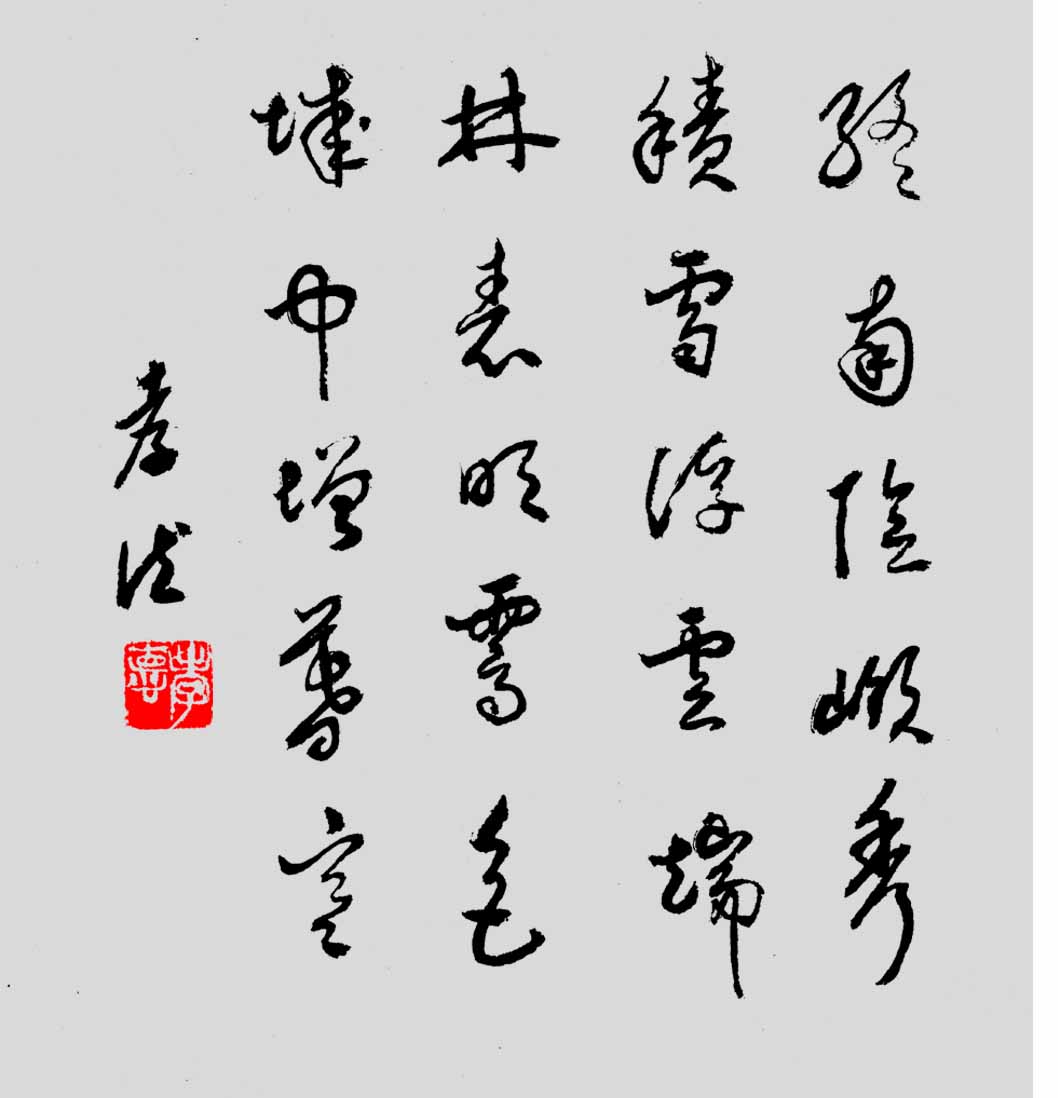 終南陰嶺秀
積雪浮雲端
林表明霽色
城中增暮寒
孝德
孝惪